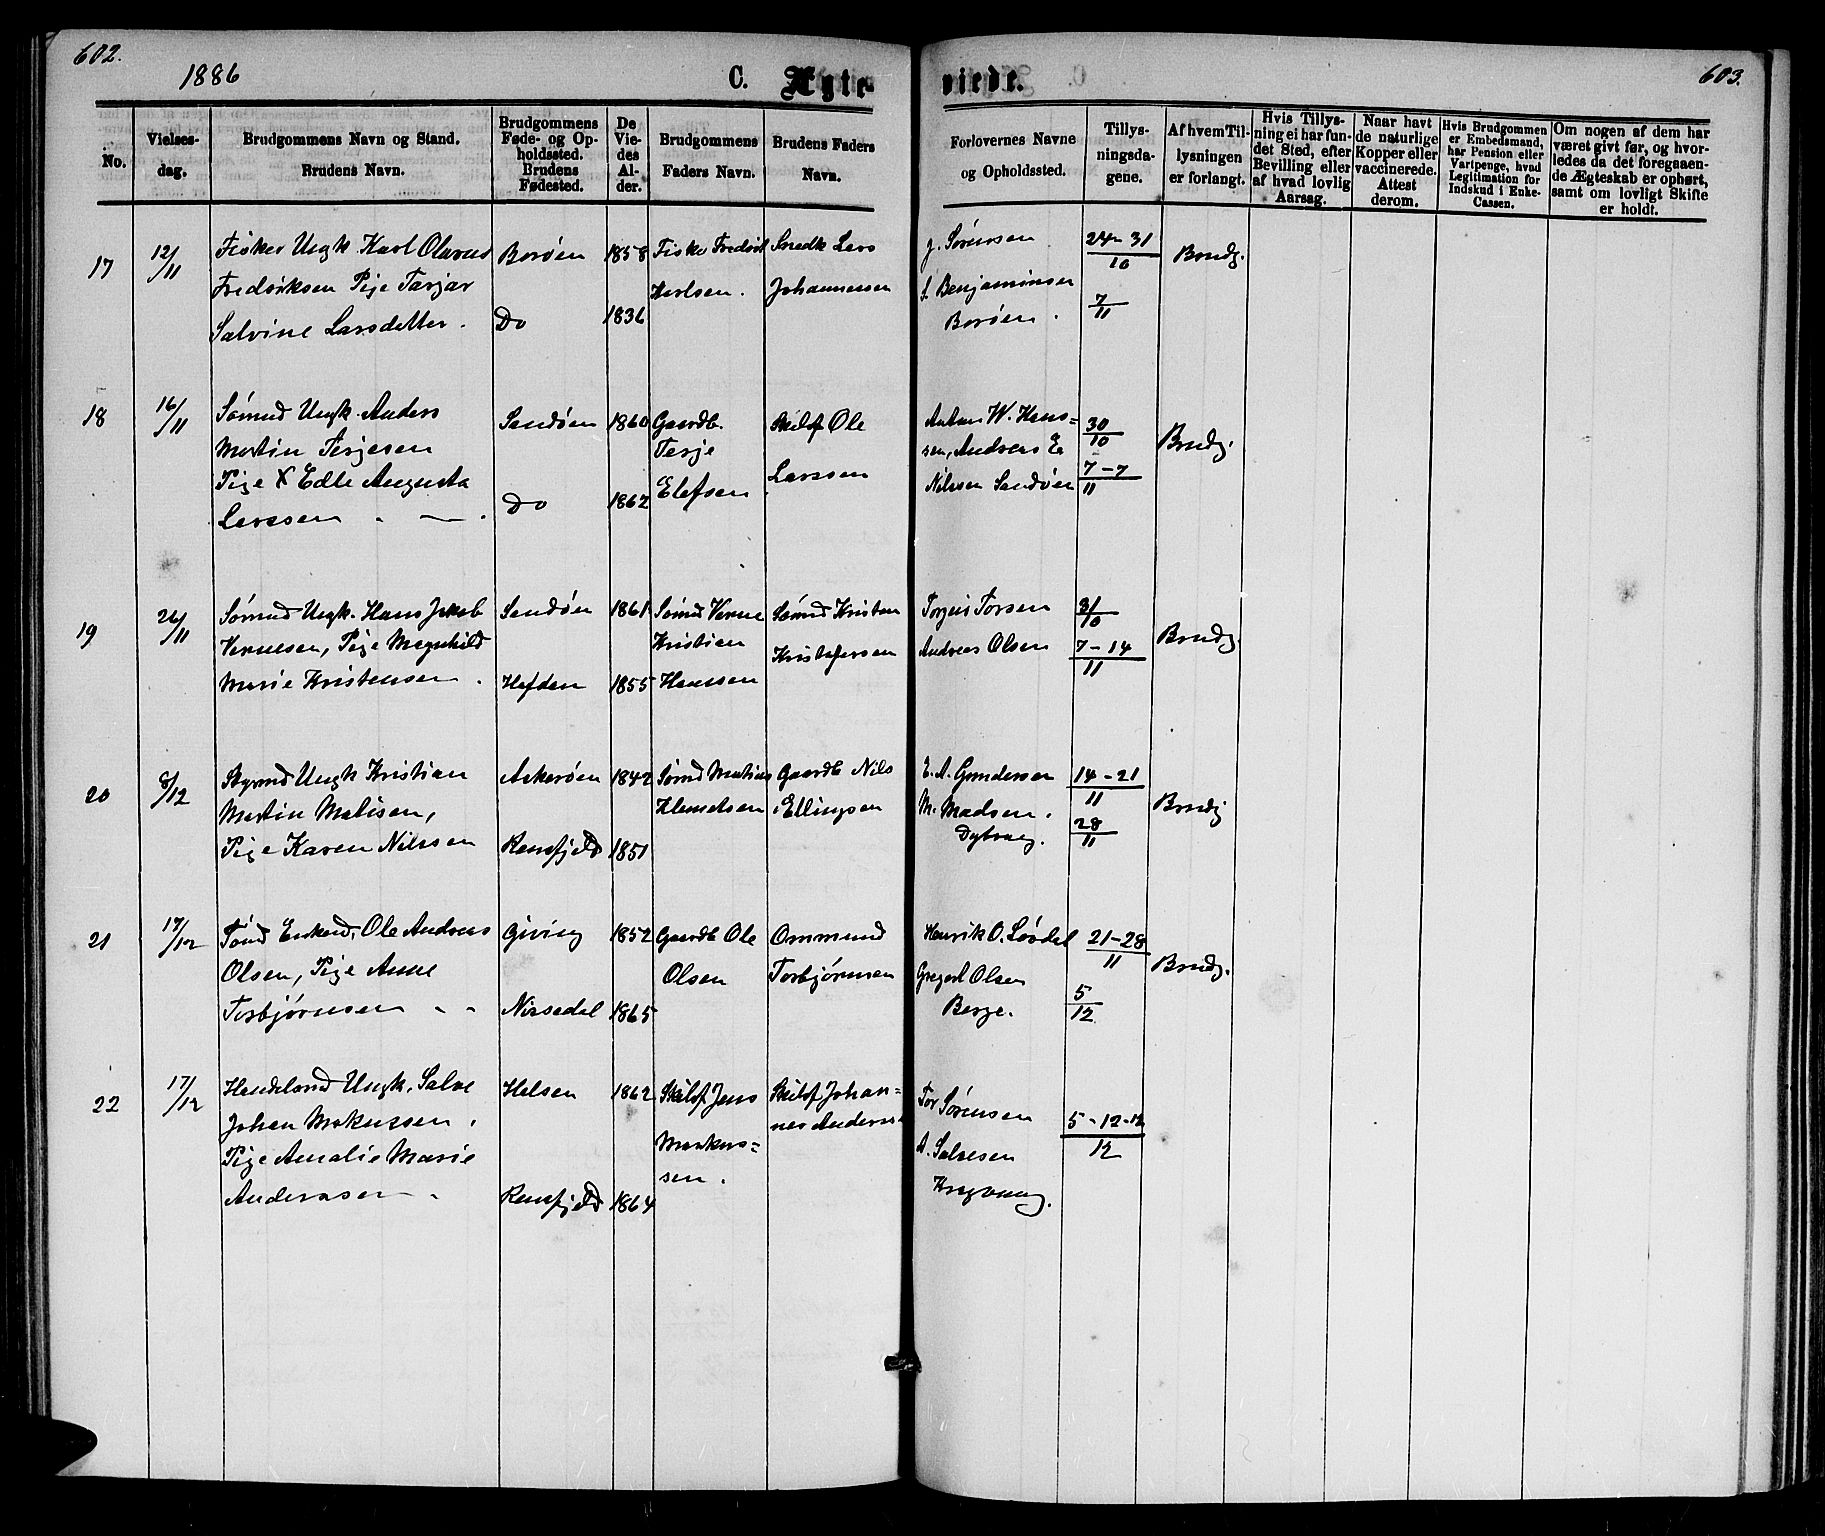 602.
1886
C. Ægte-
viede.
603.
No.
Vielses-
dag.
Brudgommens Navn og Stand.
Brudens Navn.
Brudgommens
Føde- og Op-
holdssted.
Brudens
Fødested.
De
Vie-
des
Al-
der.
Brudgommens
Faders Navn.
Brudens Faders
Navn.
Forlovernes Navne
og Opholdssted.
Tillys-
ningsda-
gene.
Af hvem Til-
lysningen
er forlangt.
Hvis Tillys-
ning ei har fun-
det Sted, efter
Bevilling eller
af hvad lovlig
Aarsag.
Naar havt
de naturlige
Kopper eller
vaccinerede.
Attest
derom.
Hvis Brudgommen
er Embedsmand,
har Pension eller
Vartpenge, hvad
Legitimation for
Indskud i Enke-
Cassen.
Om nogen af dem har
været givt før, og hvor-
ledes da det foregaaen-
de Ægteskab er ophørt,
samt om lovligt Skifte
er holdt.
17
12/11
Fisker Ungk Karl Olavus
Fredriksen Pige Tarjar
Salvine Larsdatter.
Borøen
Do
1858
1836
Fisker Fredrik
Karlsen.
Snedk Lars
Johannessen
J. Sørensen
S. Benjaminsen
Borøen.
24-31
10
7
11
Brudg.
18
16/11
Sømnd Ungk. Anders
Martin Terjesen
Pige X Edle Augusta
Larssen
Sandøen
Do
1860
1862
Gaardb.
Terje
Elefsen
Skibsf Ole
Larssen
Anton W. Hans=
sen, Andreas E.
Nilssen Sandøen
30
10
7-7
11
Brudg.
19
26/11
Sømnd Ungk. Hans Jakob
Pige Magnhild
Marie Kristensen.
Sandøen
1861
1855
Sømnd
Kristian
Hanssen
Sømnd Kristen
Kristofersen
Torjus Torsen
Andreas Olsen
31/10
7-14
11
Brudg
20
8/12
Styrmd Ungk Kristian
Martin Matisen,
Pige Karen Nilssen
Askerøen
Ramsfjeld
1842
1851
Sømd Matias
Klemetsen
Gaardb Nils
Ellingsen
E. A. Gundersen
M. Madsen.
Dybvaag.
14-21
11
28
11
Brudg
21
17/12
Tømd Enkemd, Ole Andreas
Olsen, Pige Anne
Torbjørnsen
Giving
Nissedal
1852
1865
Gaardb Ole
Olsen
Ommund
Torbjørnsen
Henrik O. Løvdal
Gregert Olsen
Berge.
21-28
11
5
12
Brudg.
22
17/12
Handelsmd Ungk. Salve
Johan Markussen.
Pige Amalie Marie
Anderssen
Halsen
Ramsfjeld
1862
1864
Skibsf Jens
Markus=
sen.
Skibsf Johan=
nes Anderssen
Tor Sørensen
A. Salvesen
Krogvaag.
5-12-12
12